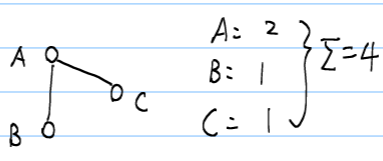 A
B
C
A: 2
B: 1
C: 1
Σ=4